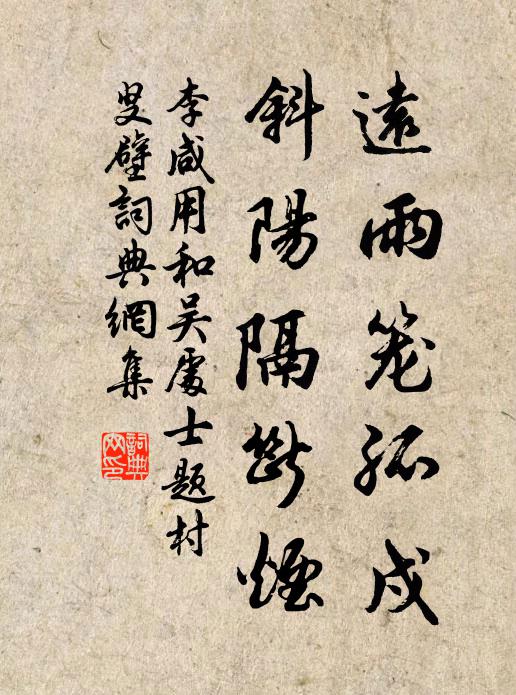 遠雨笼孤戍
斜陽隔断煙
李咸用和吴處士題村
叟壁詞典網集
詞典网印